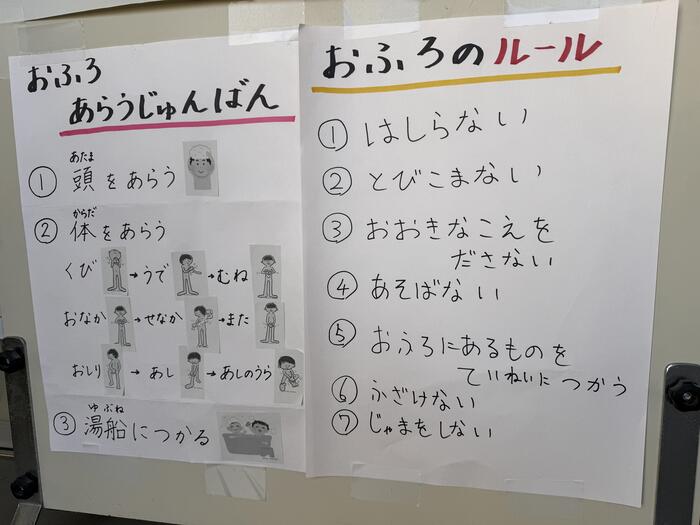 おふろ
あらうじゅんばん
あたま
① 頭をあらう
からだ
② 体をあらう
くび → うで → むね
おなか → せなか → また
おしり → あし → あしのうら
ゆぶね
③ 湯船につかる
おふろのルール
① はしらない
② とびこまない
③ おおきなこえを
ださない
④ あそばない
⑤ おふろにあるものを
ていねいにつかう
⑥ ふざけない
⑦ じゃまをしない